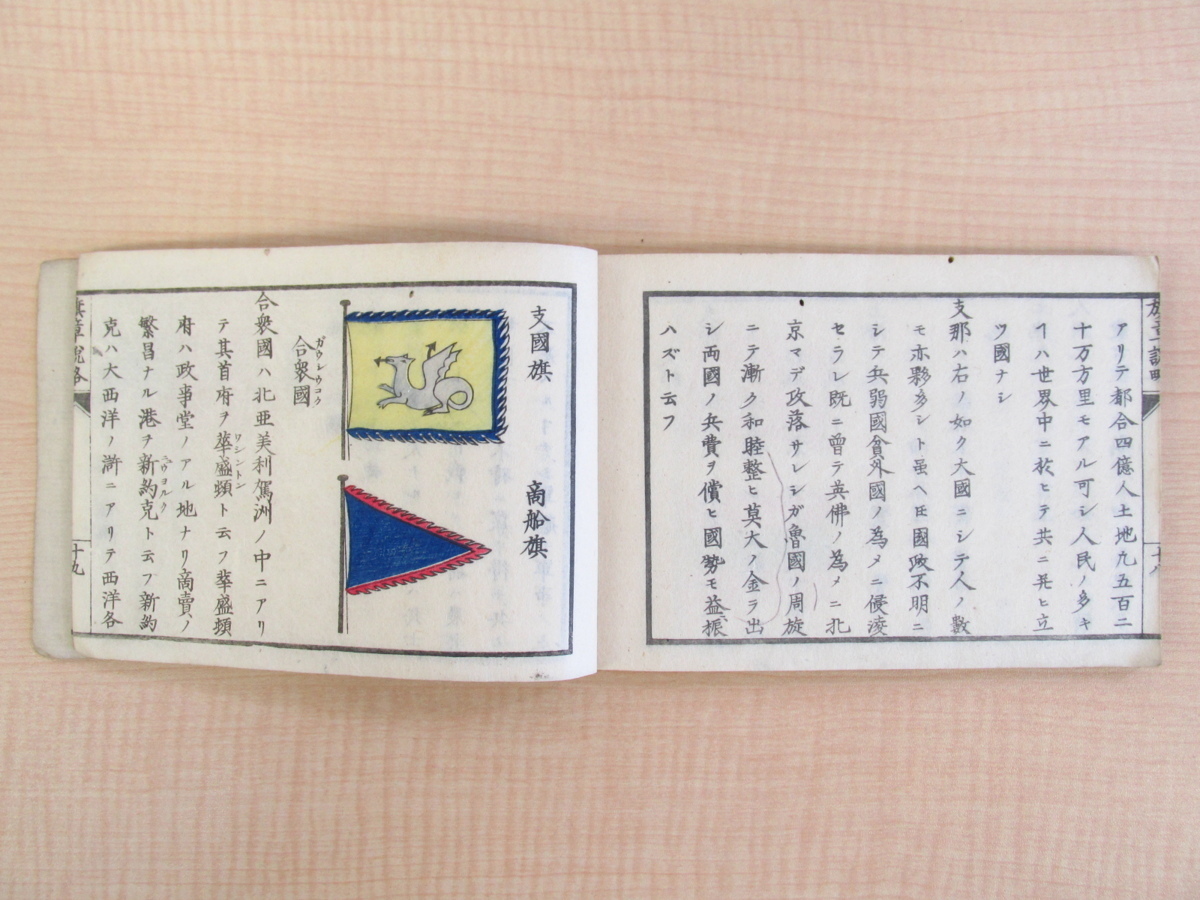 アリテ都合四億人土地九五百二
十万方里モアル可シ人民ノ多キ
ヿハ世界中ニ於ヒテ共ニ幷ヒ立
ツ國ナシ
支那ハ右ノ如ク大國ニシテ人ノ數
モ亦夥多シト虽ヘ𪜈國政不明ニ
シテ兵弱國貧外國ノ為メニ侵凌
セラレ既ニ曽テ英佛ノ為メニ北
京マデ攻落サレシガ魯國ノ周旋
ニテ漸ク和睦整ヒ莫大ノ金ヲ出
シ両國ノ兵費ヲ償ヒ國勢モ益振
ハズト云フ
十九
支國旗
商船旗
合衆國
ガウレウコク
合衆國ハ北亜美利駕洲ノ中ニアリ
テ其首府ヲ華盛頓ト云フ華盛頓
ワシントン
府ハ政事堂ノアル地ナリ商賣ノ
繁昌ナル港ヲ新約克ト云フ新約
ニウヨルク
克ハ大西洋ノ滸ニアリテ西洋各